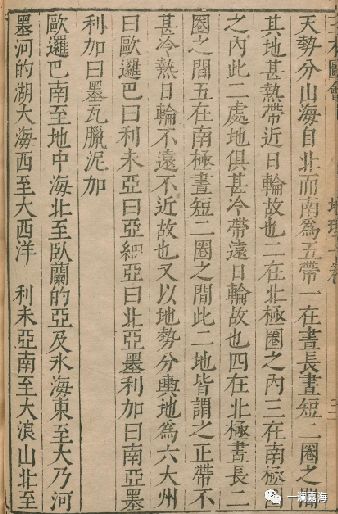 天勢分山海自北而南爲五帶一在晝長晝短 圈之間
其地甚熱帶近日輪故也二在北極圈之內三在南極圈
之內此二處地俱甚冷帶遠日輪故也四在北極晝長二
圈之間五在南極晝短二圈之間此二地皆謂之正帶不
甚冷熱日輪不遠不近故也又以地勢分輿地爲六大州
曰歐邏巴曰利未亞曰亞細亞曰北亞墨利加曰南亞墨
利加曰墨瓦臘泥加
歐邏巴南至地中海北至臥蘭的亞及氷海東至大乃河
墨河的湖大海西至大西洋　利未亞南至大浪山北至
一澜嘉海